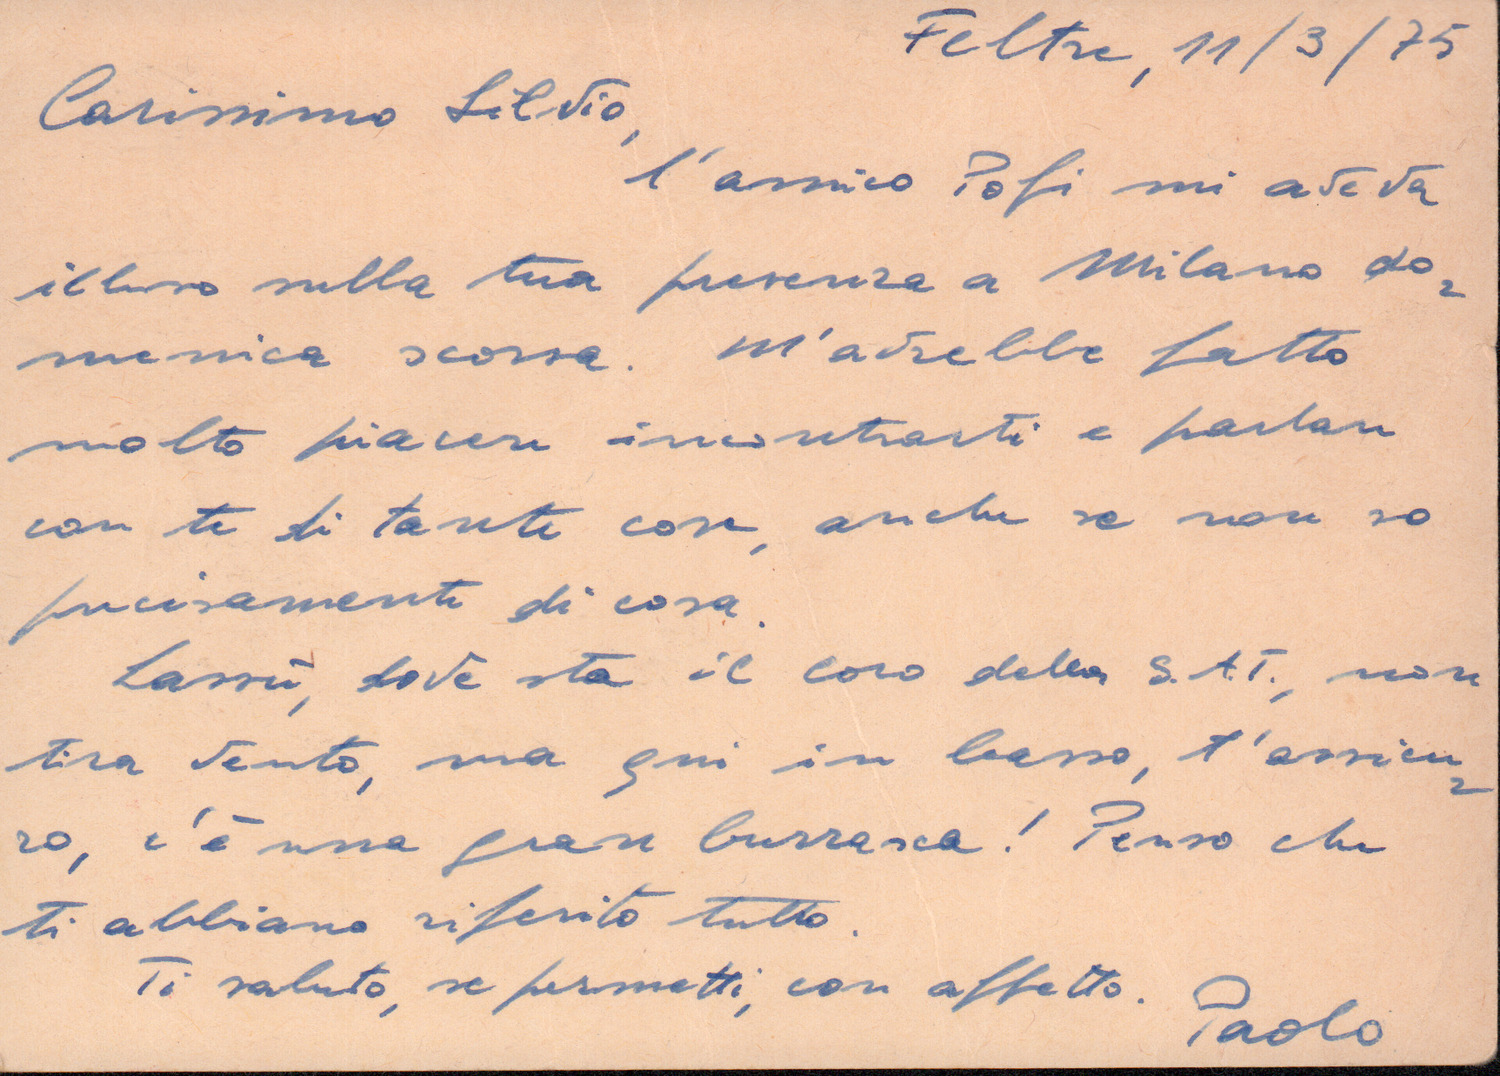 Feltre, 11/3/75
Carissimo Silvio,
l'amico Pofi mi aveva
illuso sulla tua presenza a Milano do=
menica scorsa. M'avrebbe fatto
molto piacere incontrarti e parlare
con te di tante cose, anche se non so
precisamente di cosa.
Lassù, dove sta il coro della S.A.T., non
tira vento, ma qui in basso, t'assicu=
ro, c'è una gran burrasca! Penso che
ti abbiano riferito tutto.
Ti saluto, se permetti, con affetto.
Paolo